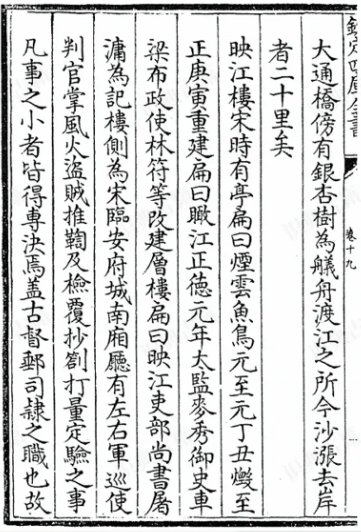 欽定四庫全書
卷十九
大通橋傍有銀杏樹為艤舟渡江之所今沙漲去岸
者二十里矣
映江樓宋時有亭扁曰煙雲魚鳥元至元丁丑燬至
正庚寅重建扁曰瞰江正德元年太監麥秀御史車
梁布政使林符等改建層樓扁曰映江吏部尚書屠
滽為記樓側為宋臨安府城南廂廳有左右軍巡使
判官掌風火盜賊推鞫及檢覆抄劄打量定驗之事
凡事之小者皆得專決焉蓋古督郵司隸之職也故